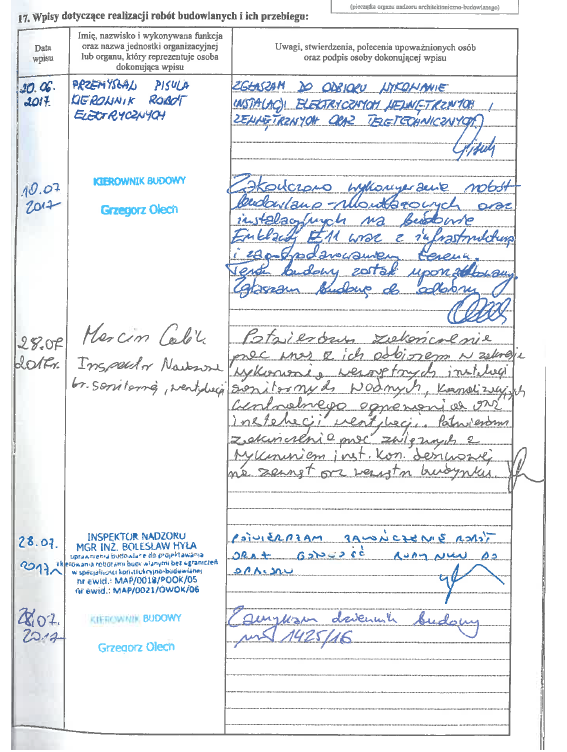 (pieczątka organu nadzoru architektoniczno-budowlanego)
17. Wpisy dotyczące realizacji robót budowlanych i ich przebiegu:
Data wpisu
Imię, nazwisko i wykonywana funkcja oraz nazwa jednostki organizacyjnej lub organu, który reprezentuje osoba dokonująca wpisu
Uwagi, stwierdzenia, polecenia upoważnionych osób oraz podpis osoby dokonującej wpisu
20.06.
2017.
PRZEMYSŁAW PISULA
KIEROWNIK ROBÓT
ELEKTRYCZNYCH
ZGŁASZAM DO ODBIORU WYKONANIE
INSTALACJI ELEKTRYCZNYCH WEWNĘTRZNYCH,
ZEWNĘTRZNYCH ORAZ TELETECHNICZNYCH
10.07
2017
KIEROWNIK BUDOWY
Grzegorz Olech
Zakończono wykonywanie robót
budowlano-montażowych oraz
instalacyjnych na budowie
E11 wraz z infrastrukturą
i zagospodarowaniem terenu.
Teren budowy został uporządkowany.
Zgłaszam budowę do odbioru
28.07
2017r.
Marcin
Inspektor Nadzoru
br. sanitarna, wentylacji
Potwierdzam zakończenie
prac wraz z ich odbiorem w zakresie
wykonania wewnętrznych instalacji
sanitarnych wodnych, kanalizacyjnych
centralnego ogrzewania oraz
instalacji wentylacji. Potwierdzam
zakończenie prac związanych z
wykonaniem inst. kan. deszczowej
na zewnątrz oraz wewnątrz budynku.
28.07.
2017r.
INSPEKTOR NADZORU
MGR INŻ. BOLESŁAW HYLA
uprawnienia budowlane do projektowania
i kierowania robotami budowlanymi bez ograniczeń
w specjalności konstrukcyjno-budowlanej
nr ewid.: MAP/0018/POOK/05
nr ewid.: MAP/0021/OWOK/06
POTWIERDZAM ZAKOŃCZENIE ROBÓT
ORAZ GOTOWOŚĆ BUDYNKU DO
ODBIORU
28.07.
2017
KIEROWNIK BUDOWY
Grzegorz Olech
Zamykam dziennik budowy
nr 1425/16